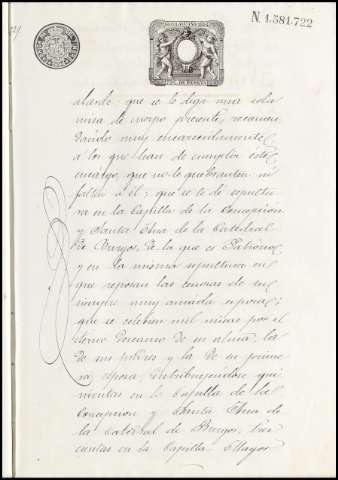 N. 1.581.722
alarde; que se le diga una sola
misa de cuerpo presente, recomen
dando muy encarecidamente
á los que han de cumplir este
encargo, que no le quebranten ni
falten á él; que se le dé sepultu
ra en la Capilla de la Concepcion
y Santa Ana de la Catedral
de Burgos, de la que es Patrono,
y en la misma sepultura en
que reposan las cenizas de su
siempre muy amada esposa;
que se celebren mil misas por el
eterno descanso de su alma, la
de sus padres y la de su prime
ra esposa, distribuyendose qui
nientas en la Capilla de la
Concepcion y Santa Ana de
la Catedral de Burgos, dos
cientas en la Capilla Mayor